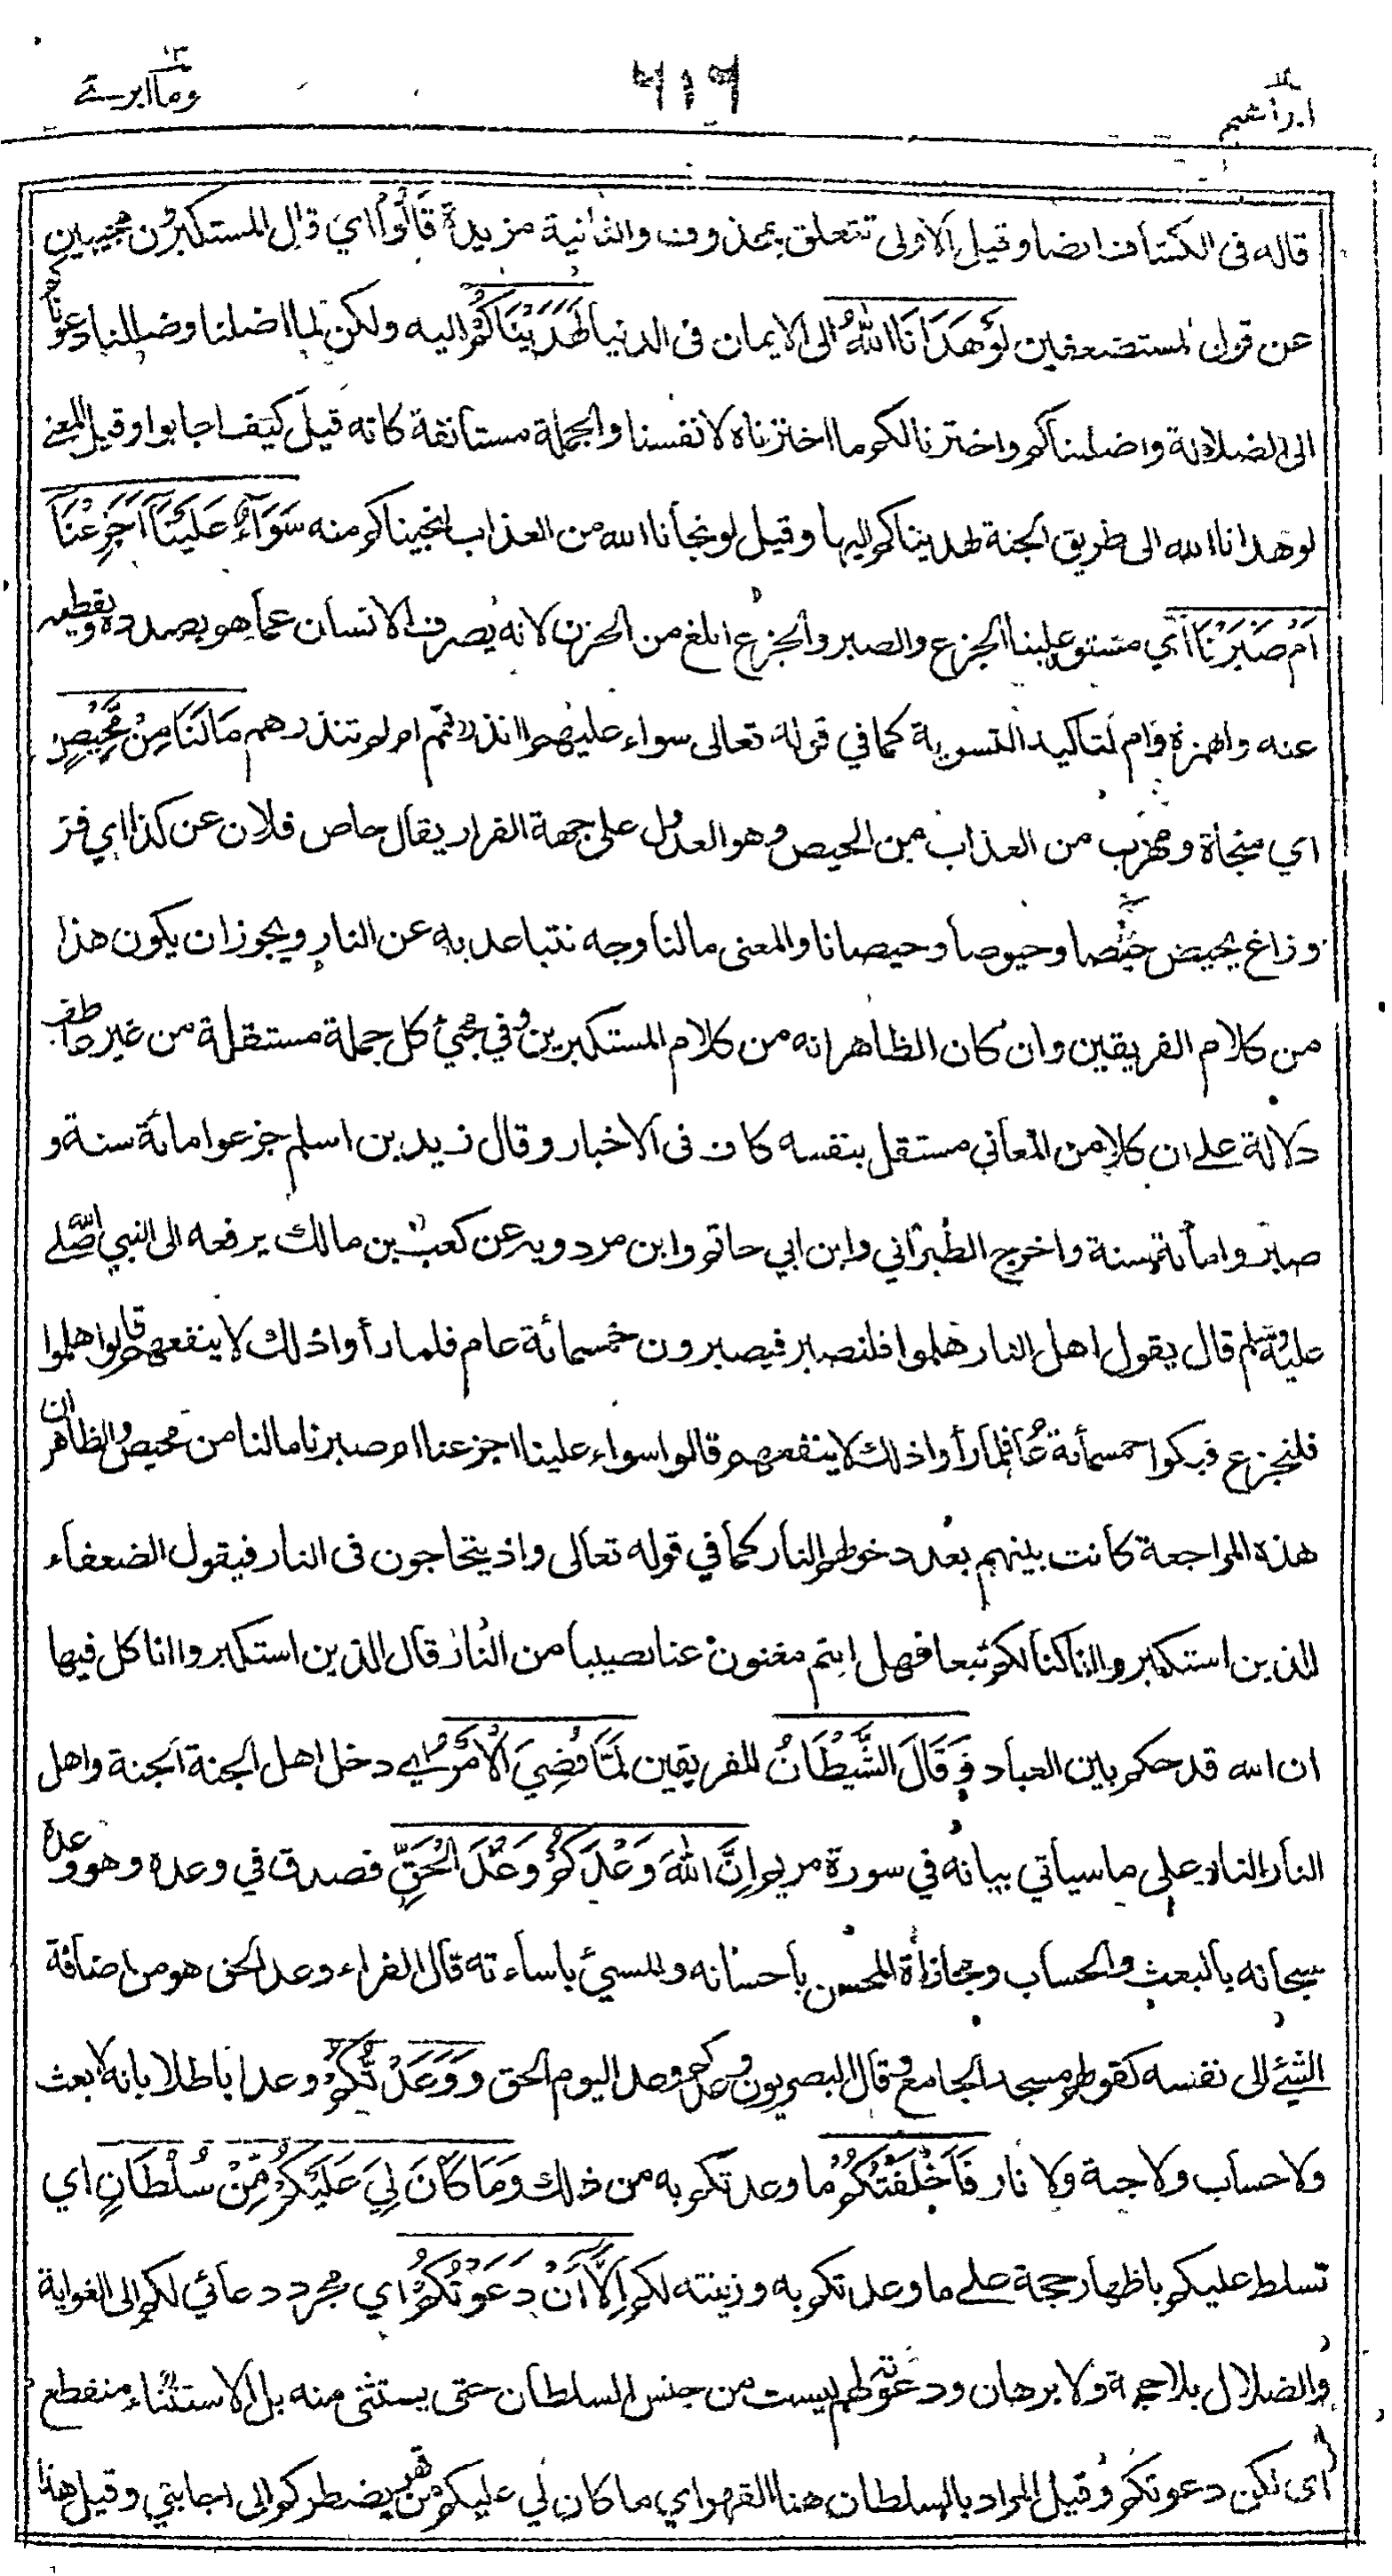 ابراهيم ١٤
٦١٩
وما ابرئ ١٣
قاله فى الكشاف ايضا وقيل الاولى تتعلق بمحذوف والثانية مزيدة قَالُوْا اي قال المستكبرون مجيبين
عن قول المستضعفين لَوْ هَدَانَا اللّٰهُ الى الايمان فى الدنيا لَهَدَيْنَاكُمْ اليه ولكن لما اضلنا وضللنا دعوناكم
الى الضلالة واضللناكم واخترنا لكم ما اخترناه لانفسنا والجملة مستأنفة كانه قيل كيف اجابوا وقيل المعنى
لو هدانا الله الى طريق الجنة لهديناكم اليها وقيل لو نجانا الله من العذاب لنجيناكم منه سَوَآءٌ عَلَيْنَا اَجَزِعْنَا
اَمْ صَبَرْنَا اي مستو علينا الجزع والصبر والجزع ابلغ من الحزن لانه يصرف الانسان عما هو بصدده ويقطعه
عنه والهمزة وام لتاكيد التسوية كما في قوله تعالى سواء عليهم اانذرتهم ام لم تنذرهم مَالَنَا مِنْ مَّحِيْصٍ
اي منجاة ومهرب من العذاب من الحيص وهو العدول على جهة الفرار يقال حاص فلان عن كذا اي فر
وزاغ يحيص حيصا وحيوصا وحيصانا والمعنى مالنا وجه نتباعد به عن النار ويجوز ان يكون هذا
من كلام الفريقين وان كان الظاهر انه من كلام المستكبرين وفي مجيئ كل جملة مستقلة من غير عاطف
دلالة على ان كلا من المعاني مستقل بنفسه كاف فى الاخبار وقال زيد بن اسلم جزعوا مائة سنة و
صبروا مائة سنة واخرج الطبراني وابن ابي حاتم وابن مردويه عن كعب بن مالك يرفعه الى النبي صلى الله
عليه وسلم قال يقول اهل النار هلموا فلنصبر فيصبرون خمسمائة عام فلما رأوا ذلك لا ينفعهم قالوا هلموا
فلنجزع فبكوا خمسمائة عام فلما رأوا ذلك لا ينفعهم قالوا سواء علينا اجزعنا ام صبرنا مالنا من محيص والظاهر ان
هذه المراجعة كانت بينهم بعد دخولهم النار كما في قوله تعالى واذ يتحاجون فى النار فيقول الضعفاء
للذين استكبروا انا كنا لكم تبعا فهل انتم مغنون عنا نصيبا من النار قال الذين استكبروا انا كل فيها
ان الله قد حكم بين العباد وَقَالَ الشَّيْطَانُ للفريقين لَمَّا قُضِيَ الْاَمْرُ اي دخل اهل الجنة الجنة واهل
النار النار على ما سياتي بيانه في سورة مريم اِنَّ اللّٰهَ وَعَدَكُمْ وَعْدَ الْحَقِّ فصدق في وعده وهو وعده
سبحانه بالبعث والحساب ومجازاة المحسن باحسانه والمسيئ باساءته قال الفراء وعد الحق هو من اضافة
الشيئ الى نفسه كقولهم مسجد الجامع وقال البصريون وعدكم وعد اليوم الحق وَوَعَدْتُّكُمْ وعدا باطلا بانه لا بعث
ولا حساب ولا جنة ولا نار فَاَخْلَفْتُكُمْ ما وعدتكم به من ذلك وَمَا كَانَ لِيَ عَلَيْكُمْ مِّنْ سُلْطَانٍ اي
تسلط عليكم باظهار حجة على ما وعدتكم به وزينته لكم اِلَّا اَنْ دَعَوْتُكُمْ اي مجرد دعائي لكم الى الغواية
والضلال بلا حجة ولا برهان ودعوته لهم ليست من جنس السلطان حتى يستثنى منه بل الاستثناء منقطع
اى لكن دعوتكم وقيل المراد بالسلطان هنا القهر اي ما كان لي عليكم من قهر يضطركم الى اجابتي وقيل هذا